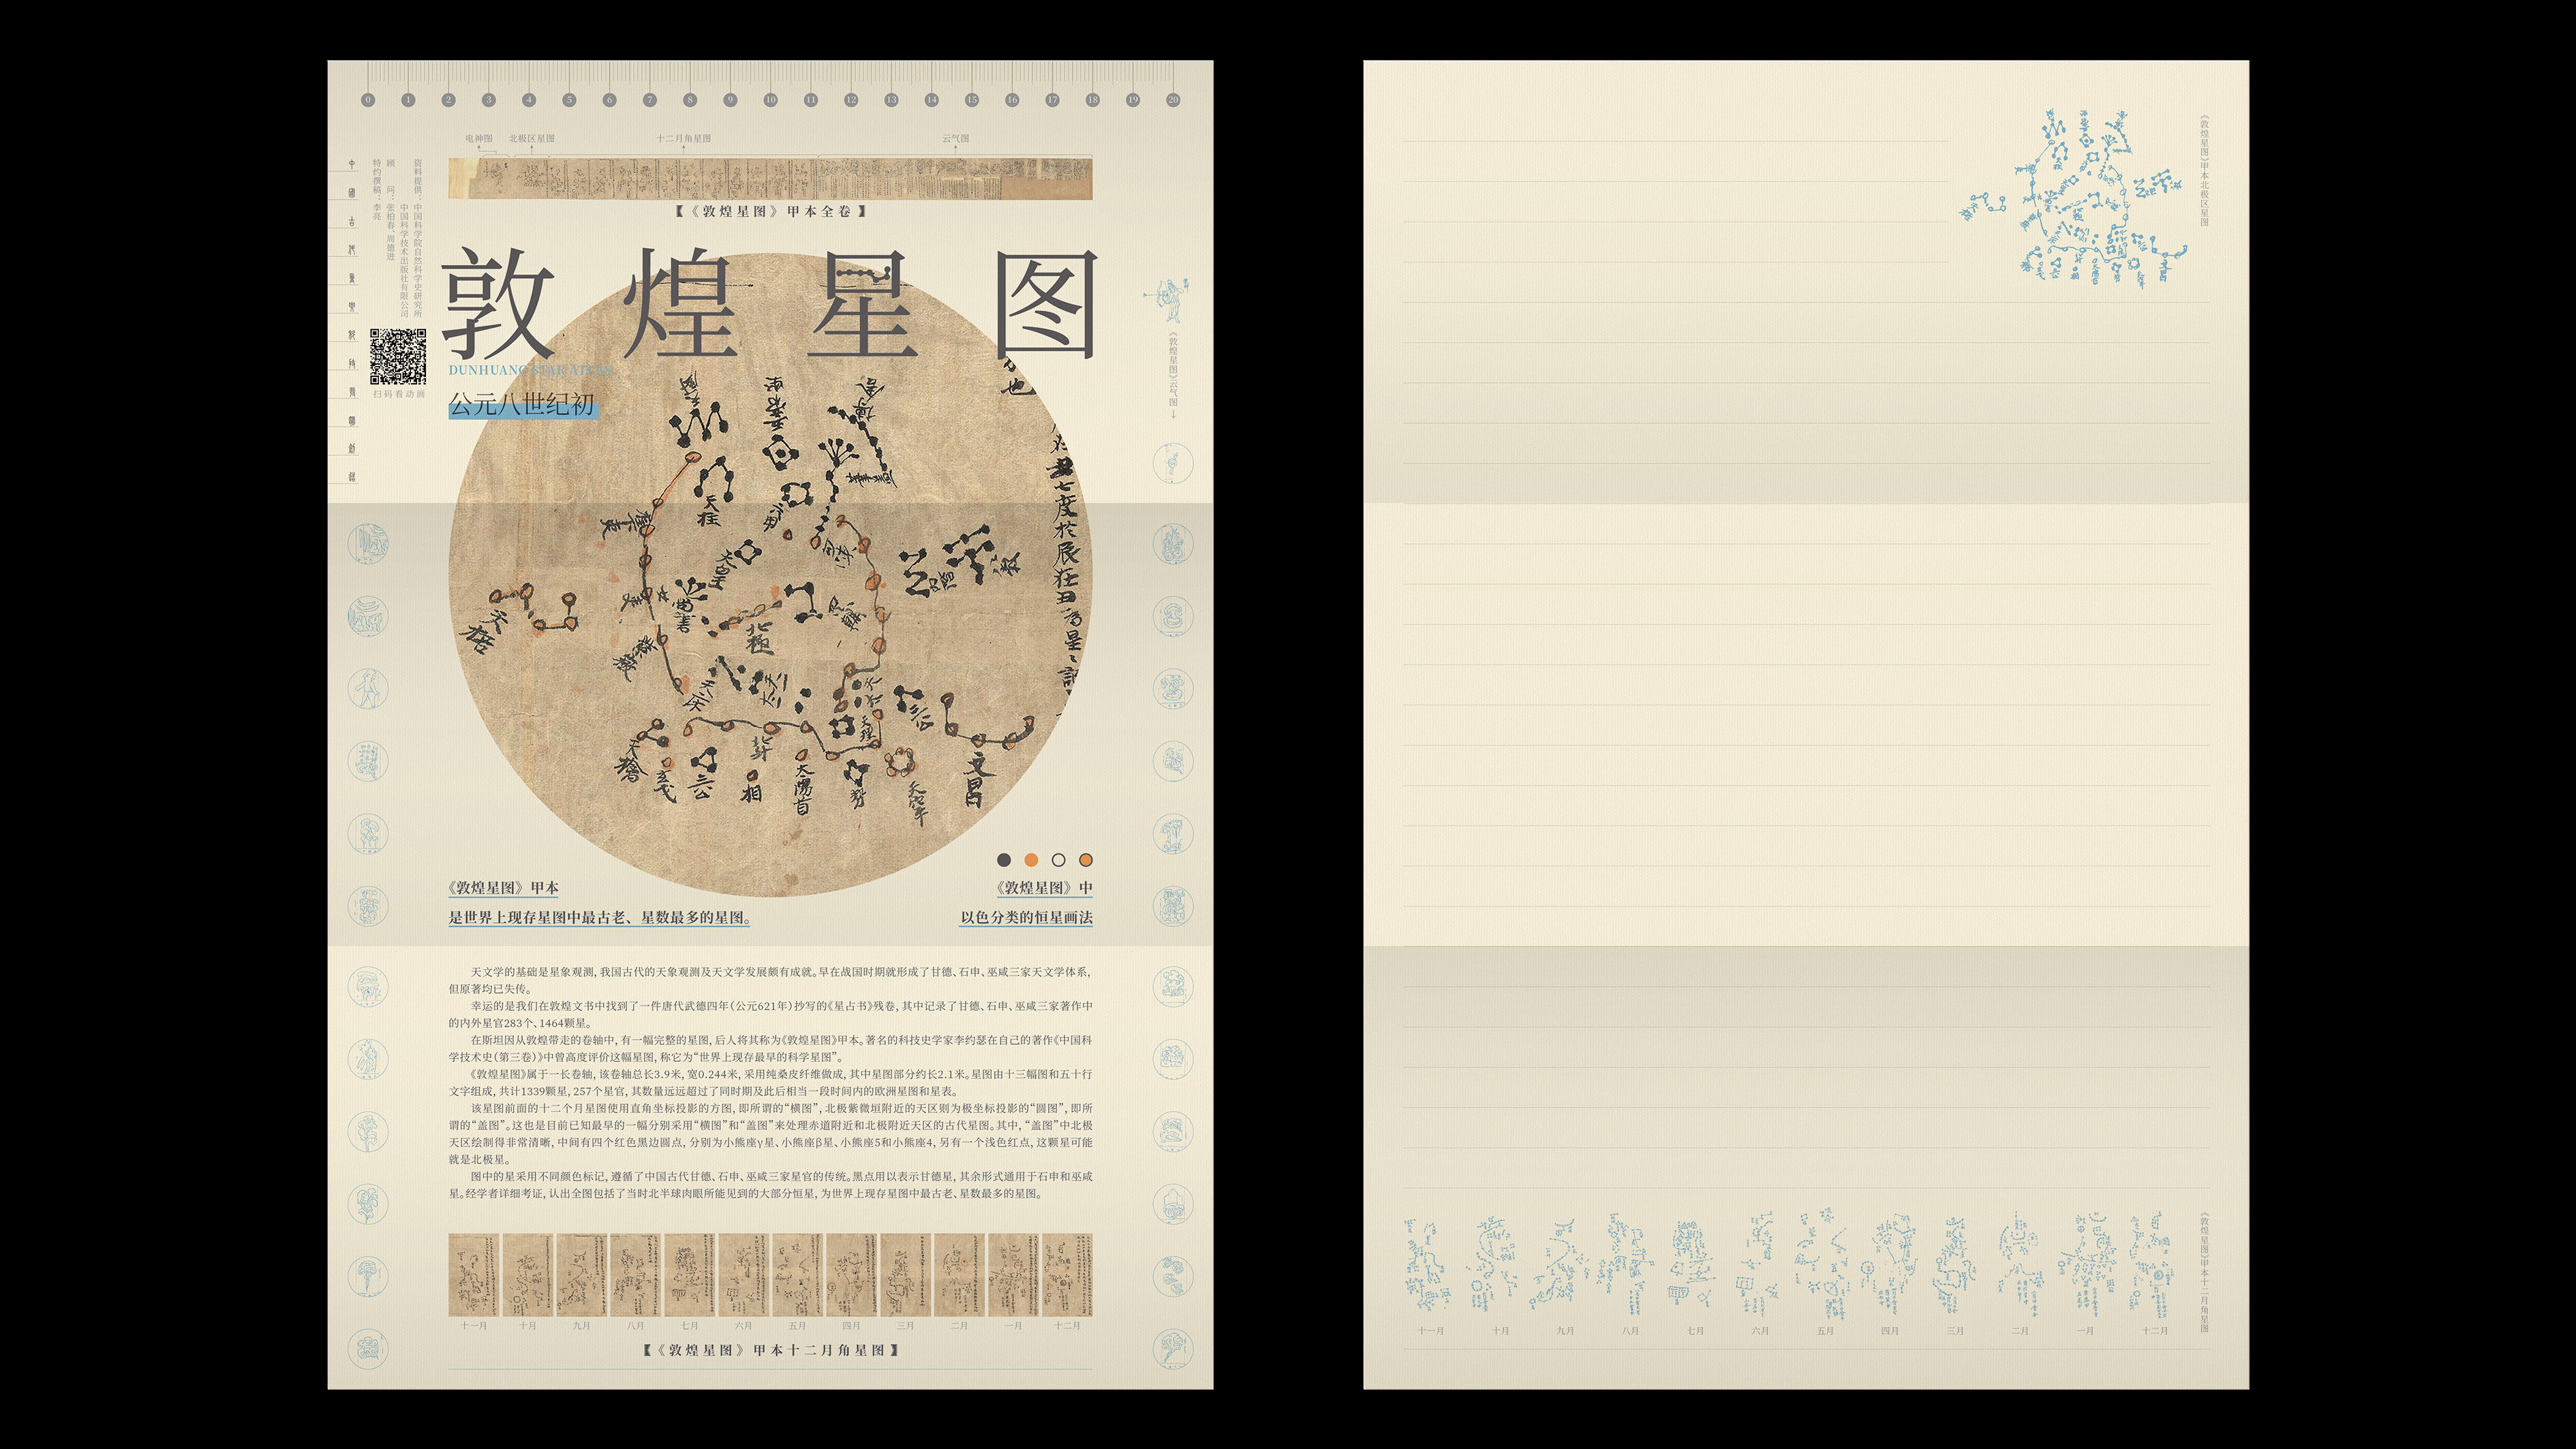 0 1 2 3 4 5 6 7 8 9 10 11 12 13 14 15 16 17 18 19 20
电神图 北极区星图 十二月角星图 云气图
【《敦煌星图》甲本全卷】
资料提供:中国科学院自然科学史研究所
中国科学技术出版社有限公司
顾 问:张柏春、周德进
特约撰稿:李亮
扫码看动画
敦煌星图
DUNHUANG STAR ATLAS
公元八世纪初
《敦煌星图》云气图→
也
天柱
天皇
北極
天棓
天床
北斗
三公
相
太陽首
勢
天牢
文昌
玄戈
天理
七度於辰在丑為星
《敦煌星图》甲本
是世界上现存星图中最古老、星数最多的星图。
《敦煌星图》中
以色分类的恒星画法
天文学的基础是星象观测,我国古代的天象观测及天文学发展颇有成就。早在战国时期就形成了甘德、石申、巫咸三家天文学体系,
但原著均已失传。
幸运的是我们在敦煌文书中找到了一件唐代武德四年(公元621年)抄写的《星占书》残卷,其中记录了甘德、石申、巫咸三家著作中
的内外星官283个、1464颗星。
在斯坦因从敦煌带走的卷轴中,有一幅完整的星图,后人将其称为《敦煌星图》甲本。著名的科技史学家李约瑟在自己的著作《中国科
学技术史(第三卷)》中曾高度评价这幅星图,称它为“世界上现存最早的科学星图”。
《敦煌星图》属于一长卷轴,该卷轴总长3.9米,宽0.244米,采用纯桑皮纤维做成,其中星图部分约长2.1米。星图由十三幅图和五十行
文字组成,共计1339颗星,257个星官,其数量远远超过了同时期及此后相当一段时间内的欧洲星图和星表。
该星图前面的十二个月星图使用直角坐标投影的方图,即所谓的“横图”,北极紫微垣附近的天区则为极坐标投影的“圆图”,即所
谓的“盖图”。这也是目前已知最早的一幅分别采用“横图”和“盖图”来处理赤道附近和北极附近天区的古代星图。其中,“盖图”中北极
天区绘制得非常清晰,中间有四个红色黑边圆点,分别为小熊座γ星、小熊座β星、小熊座5和小熊座4,另有一个浅色红点,这颗星可能
就是北极星。
图中的星采用不同颜色标记,遵循了中国古代甘德、石申、巫咸三家星官的传统。黑点用以表示甘德星,其余形式通用于石申和巫咸
星。经学者详细考证,认出全图包括了当时北半球肉眼所能见到的大部分恒星,为世界上现存星图中最古老、星数最多的星图。
十一月 十月 九月 八月 七月 六月 五月 四月 三月 二月 一月 十二月
【《敦煌星图》甲本十二月角星图】
《敦煌星图》甲本北极区星图
《敦煌星图》甲本十二月角星图
十一月 十月 九月 八月 七月 六月 五月 四月 三月 二月 一月 十二月